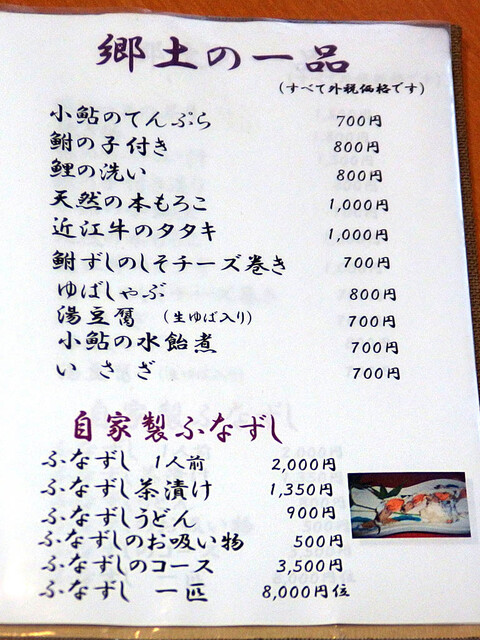 郷土の一品
(すべて外税価格です)
小鮎のてんぷら 700円
鮒の子付き 800円
鯉の洗い 800円
天然の本もろこ 1,000円
近江牛のタタキ 1,000円
鮒ずしのしそチーズ巻き 700円
ゆばしゃぶ 800円
湯豆腐 (生ゆば入り) 700円
小鮎の水飴煮 700円
いさざ 700円
自家製ふなずし
ふなずし 1人前 2,000円
ふなずし茶漬け 1,350円
ふなずしうどん 900円
ふなずしのお吸い物 500円
ふなずしのコース 3,500円
ふなずし 一匹 8,000円位